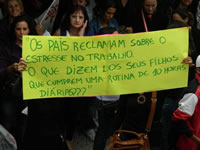 "OS PAIS RECLAMAM SOBRE O
ESTRESSE NO TRABALHO.
O QUE DIZEM DOS SEUS FILHOS
QUE CUMPREM UMA ROTINA DE 10 HORAS
DIÁRIAS???"